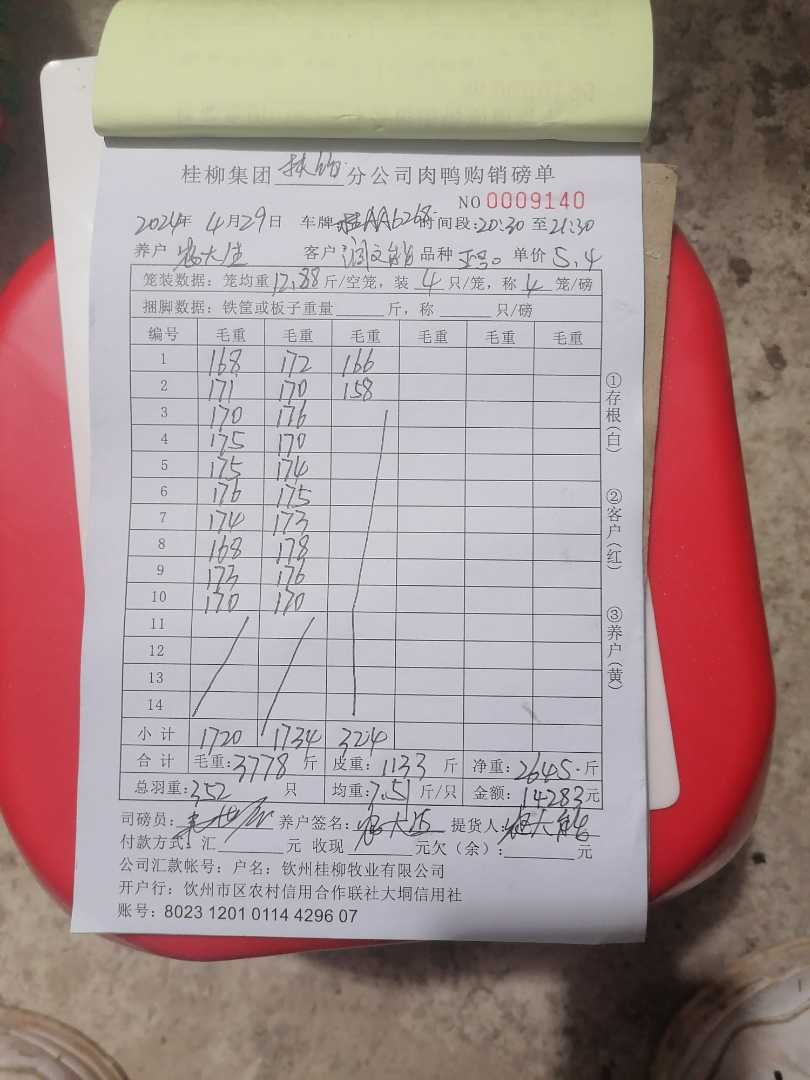 桂柳集团 分公司肉鸭购销磅单
NO 0009140
2024年 4月29日 车牌 桂AA6268 时间段:20:30 至21:30
养户 客户 品种 单价 5.4
笼装数据：笼均重12.88斤/空笼，装 4 只/笼，称 4 笼/磅
捆脚数据：铁筐或板子重量 斤，称 只/磅
编号 毛重 毛重 毛重 毛重 毛重 毛重
1 168 172 166
2 171 170 158
3 170 176
4 175 170
5 175 174
6 176 175
7 174 173
8 168 178
9 173 176
10 170 170
11
12
13
14
小计 1720 1734 324
合计 毛重:3778 斤 皮重:1133 斤 净重:2645.斤
总羽重:352 只 均重:7.51斤/只 金额:14283元
司磅员: 养户签名: 提货人:
付款方式：汇 元 收现 元欠（余）: 元
公司汇款帐号：户名：钦州桂柳牧业有限公司
开户行：钦州市区农村信用合作联社大垌信用社
账号：8023 1201 0114 4296 07
①存根(白)
②客户(红)
③养户(黄)